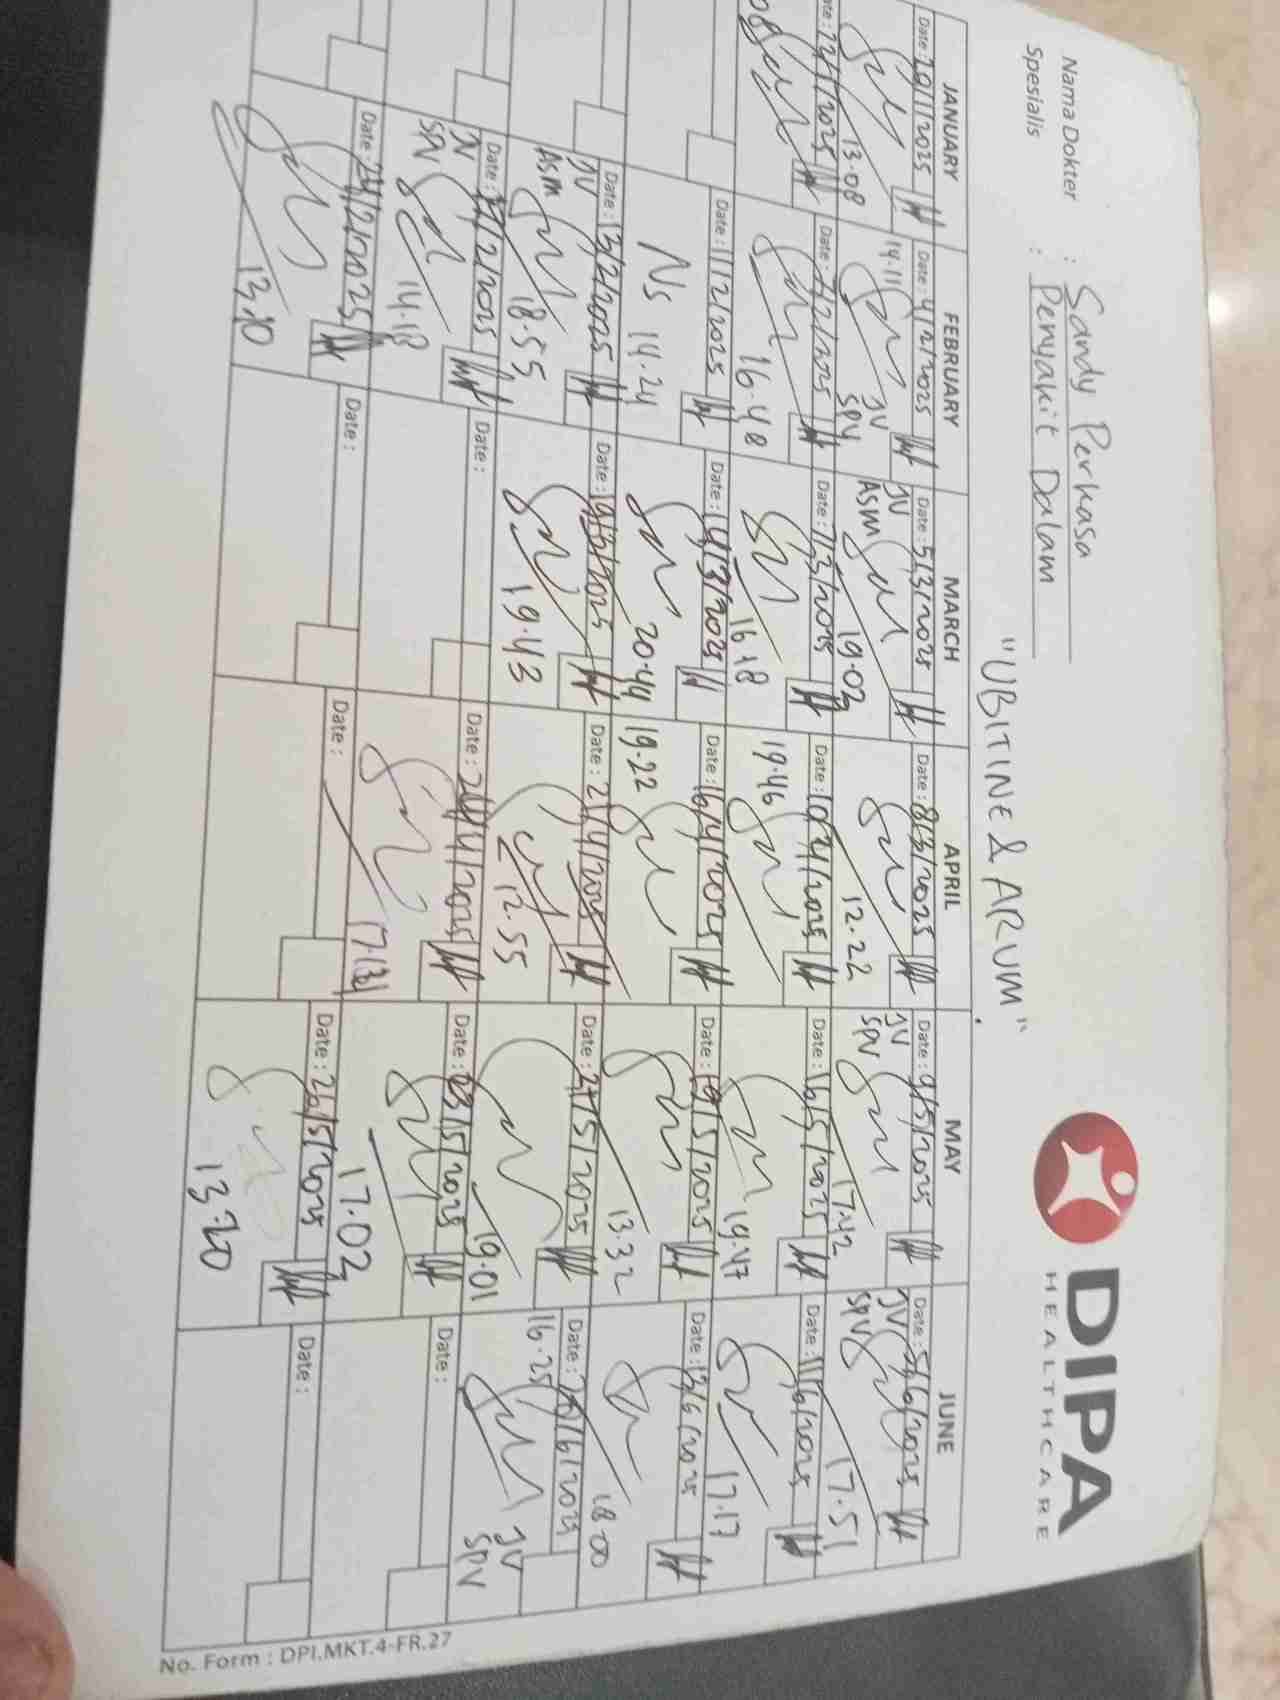 DIPA
HEALTHCARE
Nama Dokter : Sandy Perkasa
Spesialis : Penyakit Dalam
"UBITINE & ARUM".
JANUARY FEBRUARY MARCH APRIL MAY JUNE
Date: 20/1/2025 Date: 4/2/2025 Date: 5/3/2025 Date: 8/3/2025 Date: 9/5/2025 Date: 5/6/2025
13.08 14.11 JV SPV JV ASM 19.02 12.22 JV SPV 17.42 JV SPV 17.51
Date: 7/2/2025 Date: 7/3/2025 Date: 10/4/2025 Date: 16/5/2025 Date: 11/6/2025
16.48 16.18 19.46 19.47 17.17
Date: 11/2/2025 Date: 14/3/2025 Date: 16/4/2025 Date: 19/5/2025 Date: 13/6/2025
NS 14.24 20.44 19.22 13.32 18.00
Date: 13/2/2025 Date: 19/3/2025 Date: 21/4/2025 Date: 21/5/2025 Date: 20/6/2025
JV ASM 18.55 19.43 12.55 19.01 16.25 JV SPV
Date: /2/2025 Date: Date: 24/4/2025 Date: 23/5/2025 Date:
JV SPV 14.18 17.13 17.02
Date: 24/2/2025 Date: Date: Date: 26/5/2025 Date:
13.10 13.20
No. Form : DPI.MKT.4-FR.27